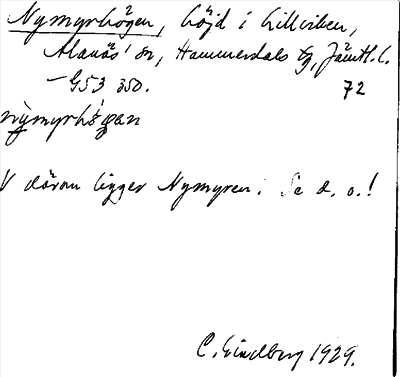 Nymyrhögen, höjd i Lillviken,
Alanäs sn, Hammerdals tg, Jämtl. l.
— G53 350. 72
nỳmyrhö́gan
V därom ligger Nymyren. Se d. o.!
C. Lindberg 1929.